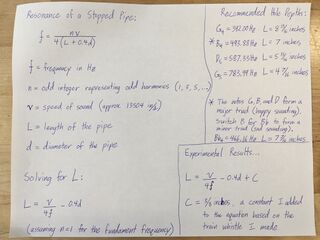 Resonance of a Stopped Pipe:
f = nv / 4(L + 0.4d)
f = frequency in Hz
n = odd integer representing odd harmonics (1, 3, 5, ...)
v = speed of sound (approx. 13504 in/s)
L = length of the pipe
d = diameter of the pipe
Solving for L:
L = v / 4f - 0.4d
(assuming n=1 for the fundament frequency)
Recommended Hole Depths:
G₄ = 392.00 Hz L = 8
* B₄ = 493.88 Hz L = 7 inches
D₅ = 587.33 Hz L = 5
G₅ = 783.99 Hz L = 4
* The notes G, B, and D form a
major triad (happy sounding).
Switch B for Bb to form a
minor triad (sad sounding).
Bb₄ = 466.16 Hz L = 7
Experimental Results...
L = v / 4f - 0.4d + C
C = inches, a constant I added
to the equation based on the
train whistle I made